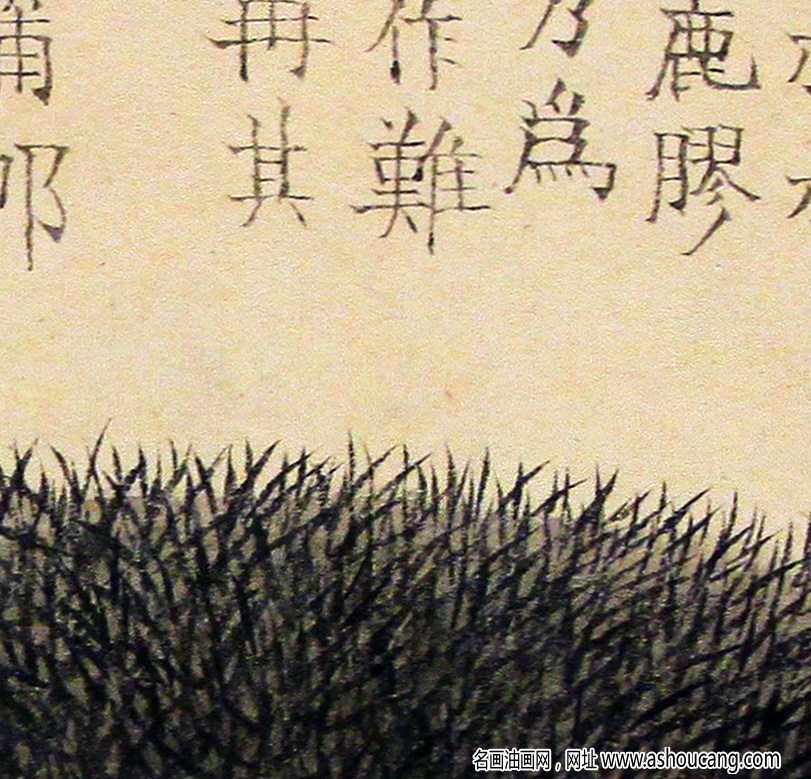 鹿膠
乃為
作難
再其
蒲邨
名画油画网，网址 www.ashoucang.com